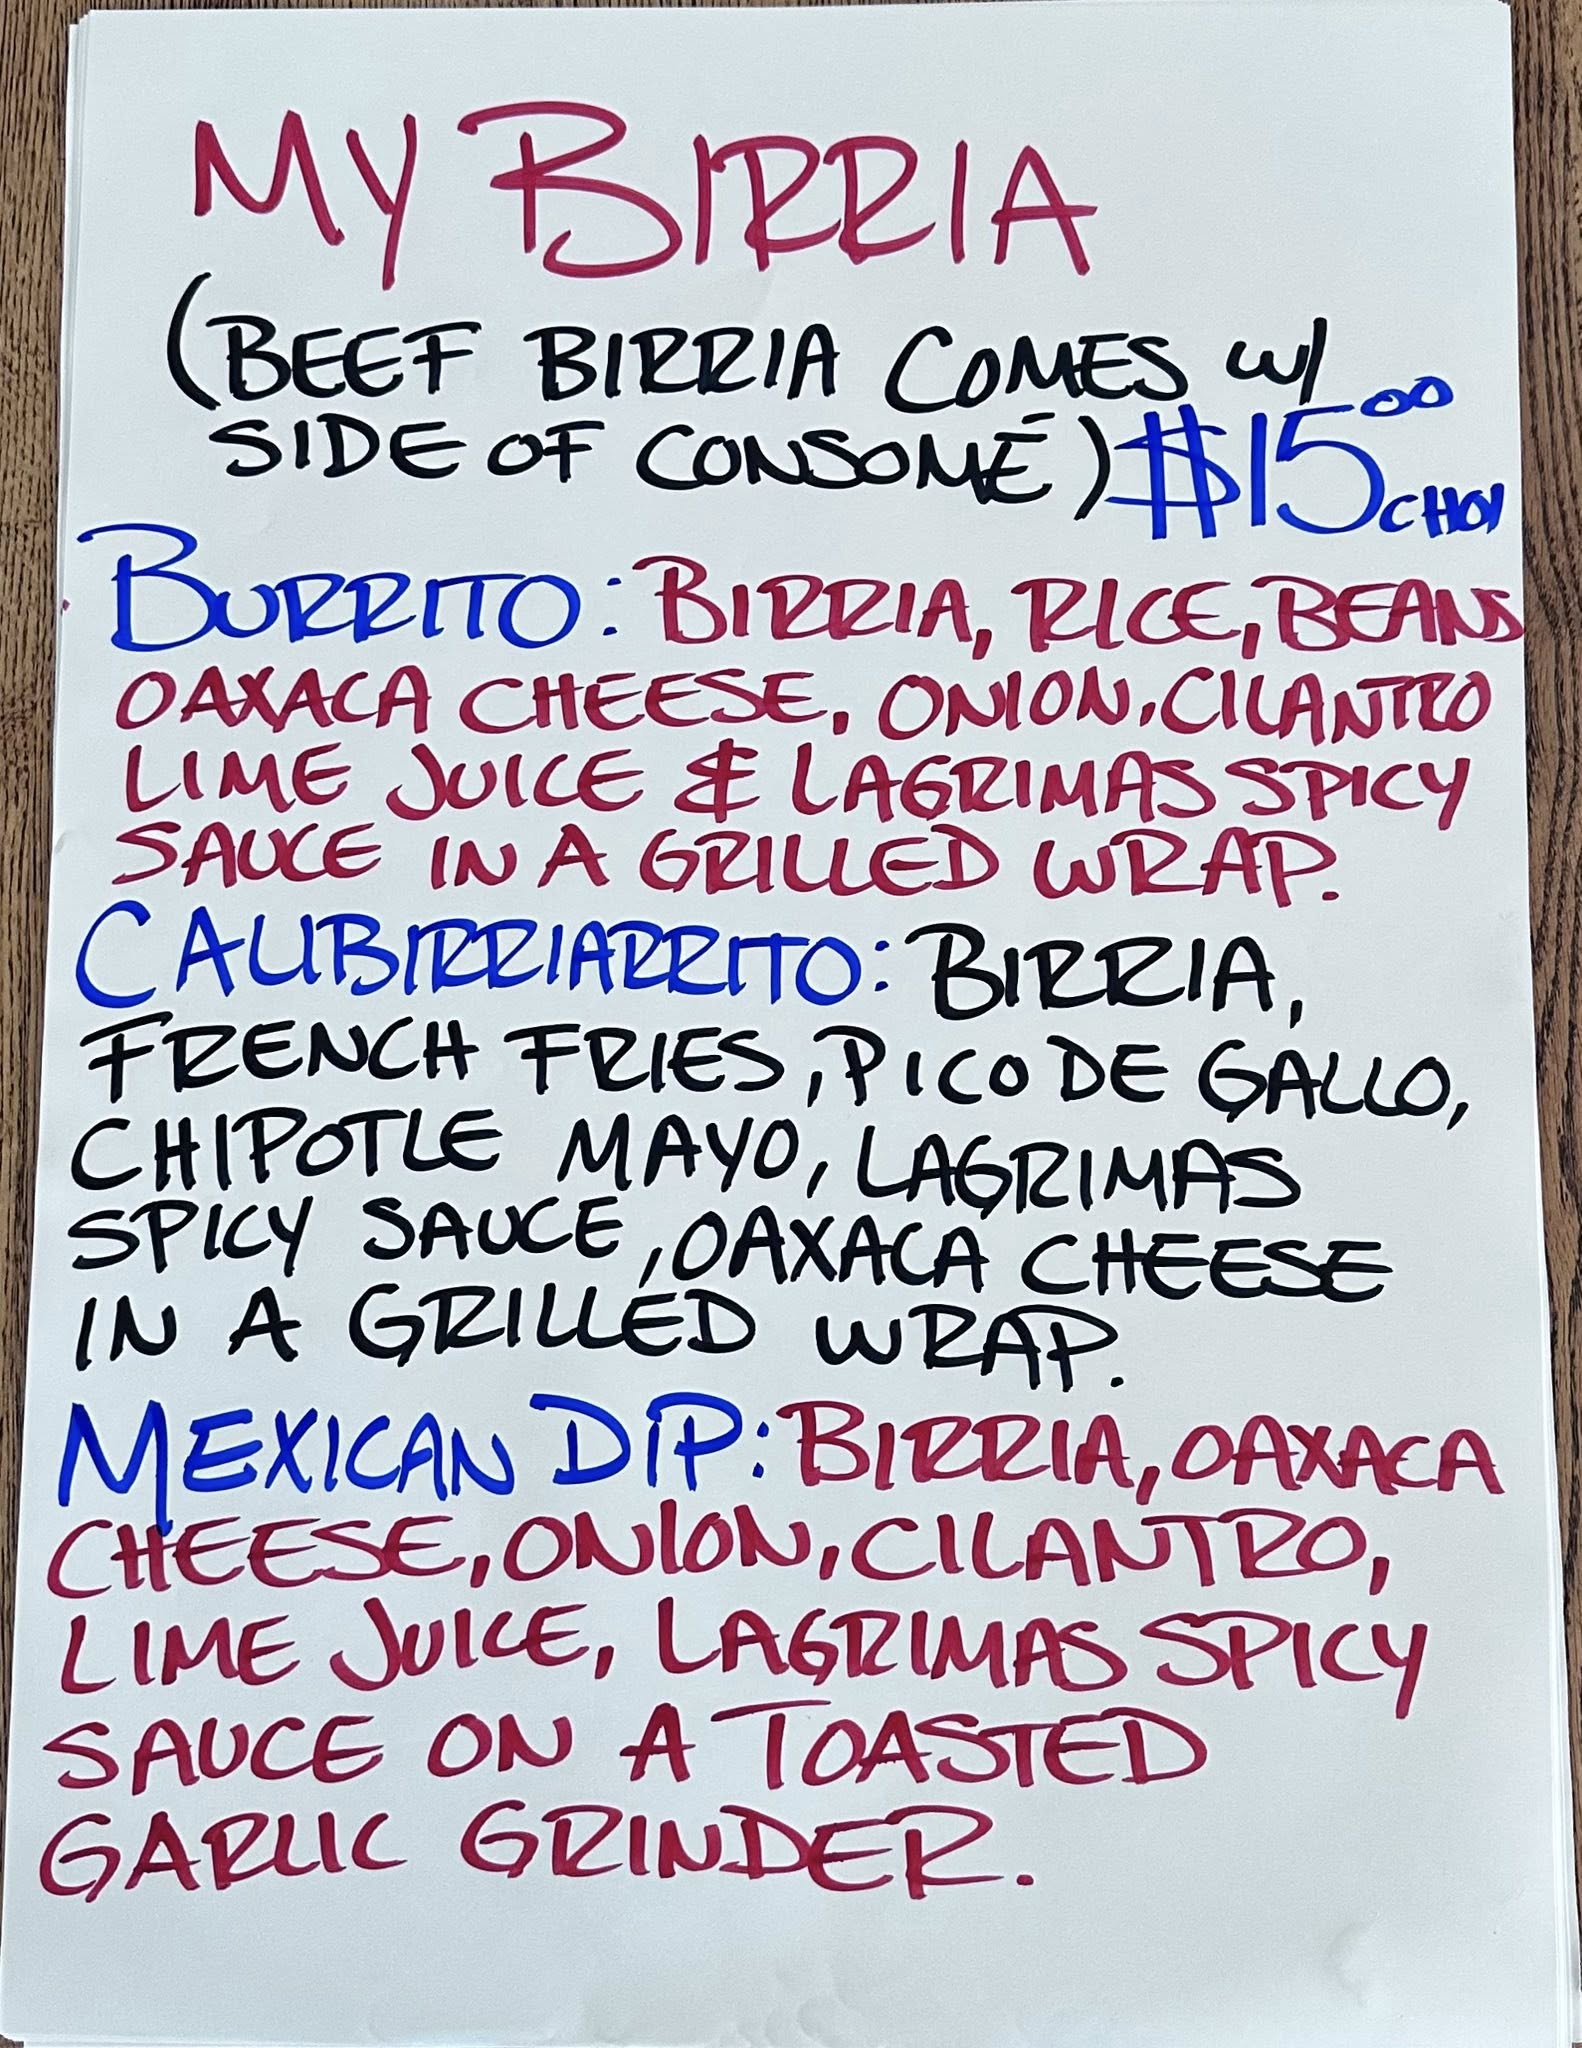 MY BIRRIA
(BEEF BIRRIA COMES W/
SIDE OF CONSOMÉ) $15.00 CHOI
BURRITO: BIRRIA, RICE, BEANS
OAXACA CHEESE, ONION, CILANTRO
LIME JUICE & LAGRIMAS SPICY
SAUCE IN A GRILLED WRAP.
CALIBIRRIARRITO: BIRRIA,
FRENCH FRIES, PICO DE GALLO,
CHIPOTLE MAYO, LAGRIMAS
SPICY SAUCE, OAXACA CHEESE
IN A GRILLED WRAP.
MEXICAN DIP: BIRRIA, OAXACA
CHEESE, ONION, CILANTRO,
LIME JUICE, LAGRIMAS SPICY
SAUCE ON A TOASTED
GARLIC GRINDER.